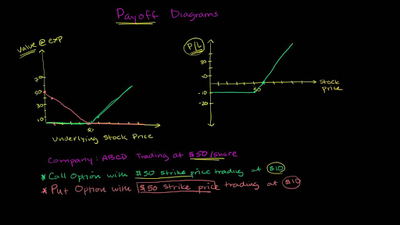 Payoff Diagrams
Value @ exp
P/L
50
10
50
50
-10
-20
Stock Price
Underlying Stock Price
Company: ABCD Trading at $50/share
* Call Option with $50 strike price trading at $10
* Put Option with $50 strike price trading at $10